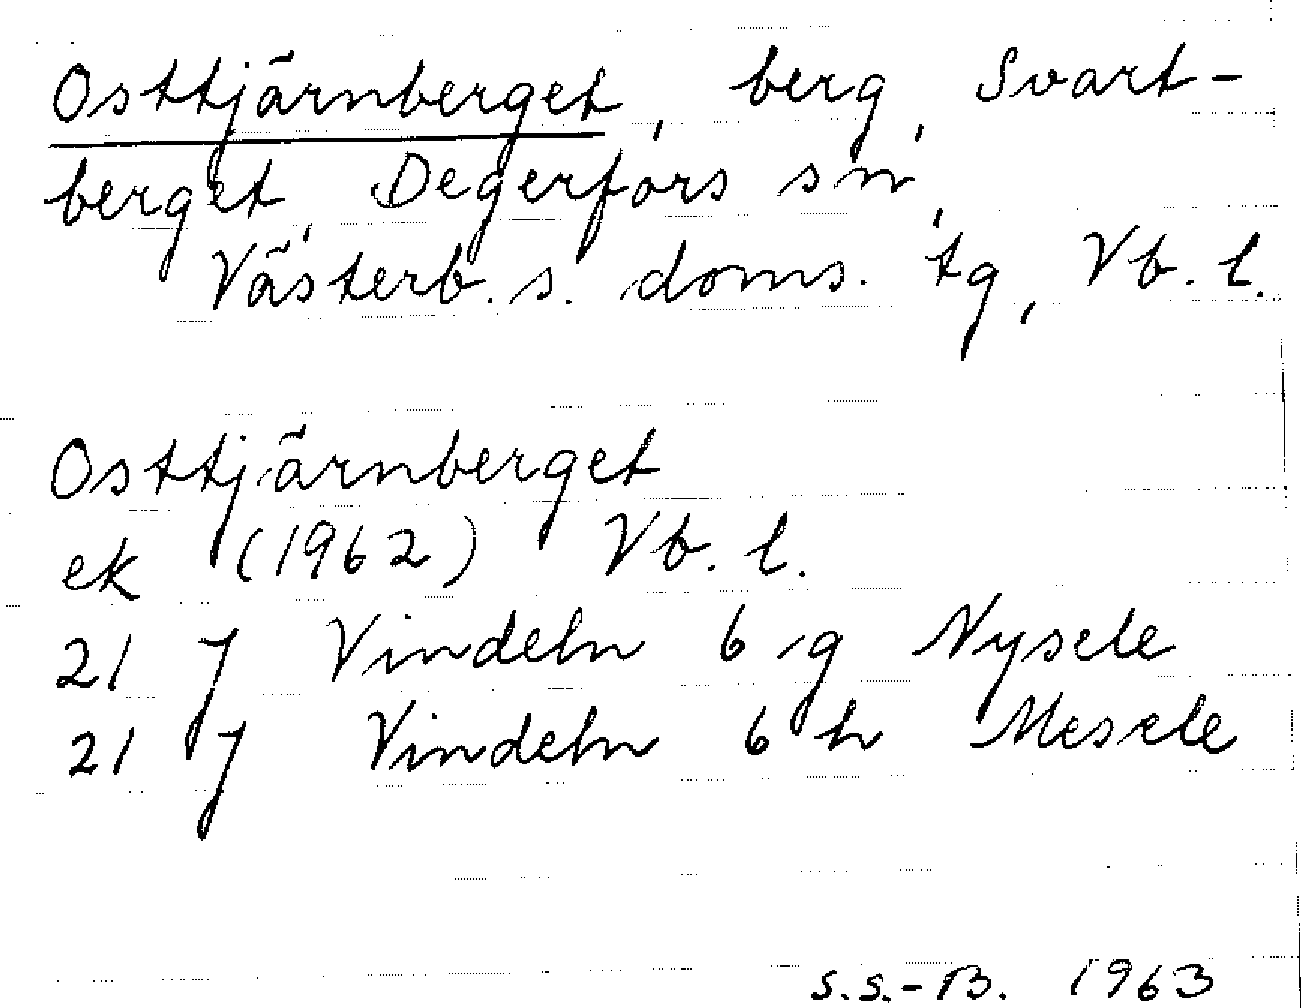 Osttjärnberget, berg, Svart-
berget, Degerfors sn,
Västerb. s. doms. tg, Vb. l.
Osttjärnberget
ek (1962) Vb. l.
21 J Vindeln 6 g Nysele
21 J Vindeln 6 h Mesele
S.S.-B. 1963